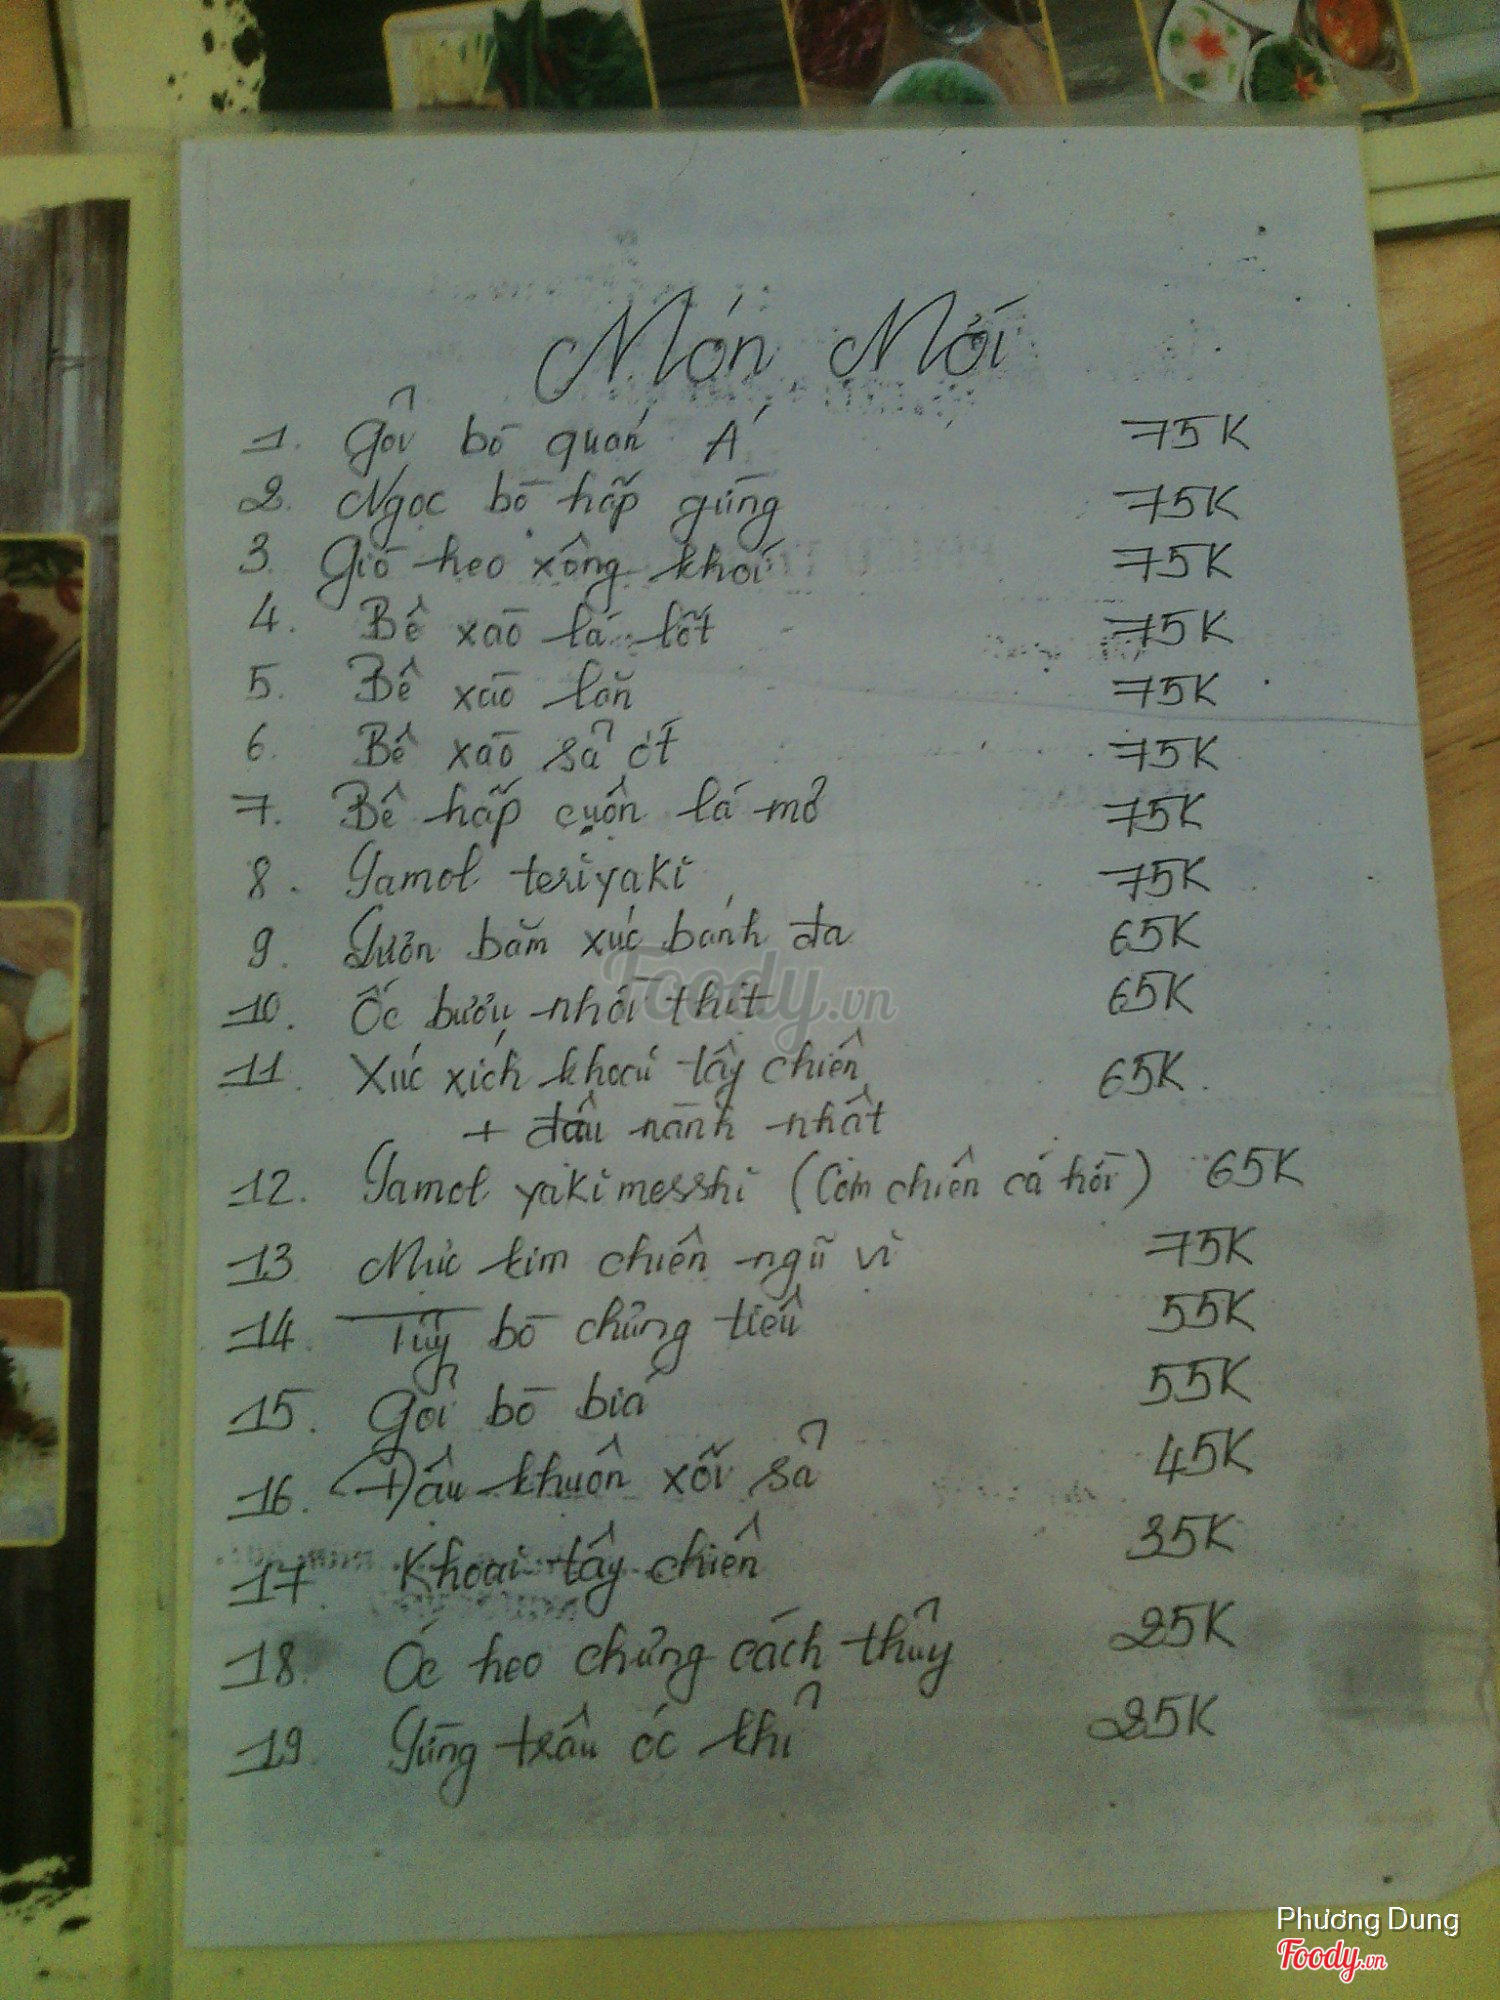 Món Mới
1. Gỏi bò quán Á 75K
2. Ngọc bò hấp gừng 75K
3. Giò heo xông khói 75K
4. Bê xào lá lốt 75K
5. Bê xào lăn 75K
6. Bê xào sả ớt 75K
7. Bê hấp cuộn lá mơ 75K
8. Yamol teriyaki 75K
9. Sườn băm xúc bánh đa 65K
10. Ốc bươu nhồi thịt 65K
11. Xúc xích khoai tây chiên 65K
+ đậu nành nhật
12. Yamol yakimesshi (Cơm chiên cá hồi) 65K
13 Mực kim chiên ngũ vị 75K
14. Tủy bò chưng tiêu 55K
15. Gỏi bò bía 55K
16. Đậu khuôn xối sả 45K
17 Khoai tây chiên 35K
18 Óc heo chưng cách thủy 25K
19. Gừng trâu óc khỉ 25K
Foody.vn
Phương Dung
Foody.vn